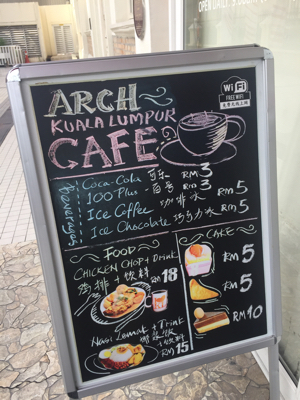 OPEN DAILY
ARCH
KUALA LUMPUR
CAFE
WiFi
FREE WIFI
免费无线上网
Beverages
Coca-Cola 可乐 RM 3
100 Plus 一百号 RM 3
Ice Coffee 咖啡冰 RM 5
Ice Chocolate 巧克力冰 RM 5
FOOD
CHICKEN CHOP + Drink
鸡排+饮料 RM 18
Nasi Lemak + Drink
RM 15
CAKE
RM 5
RM 5
RM 10